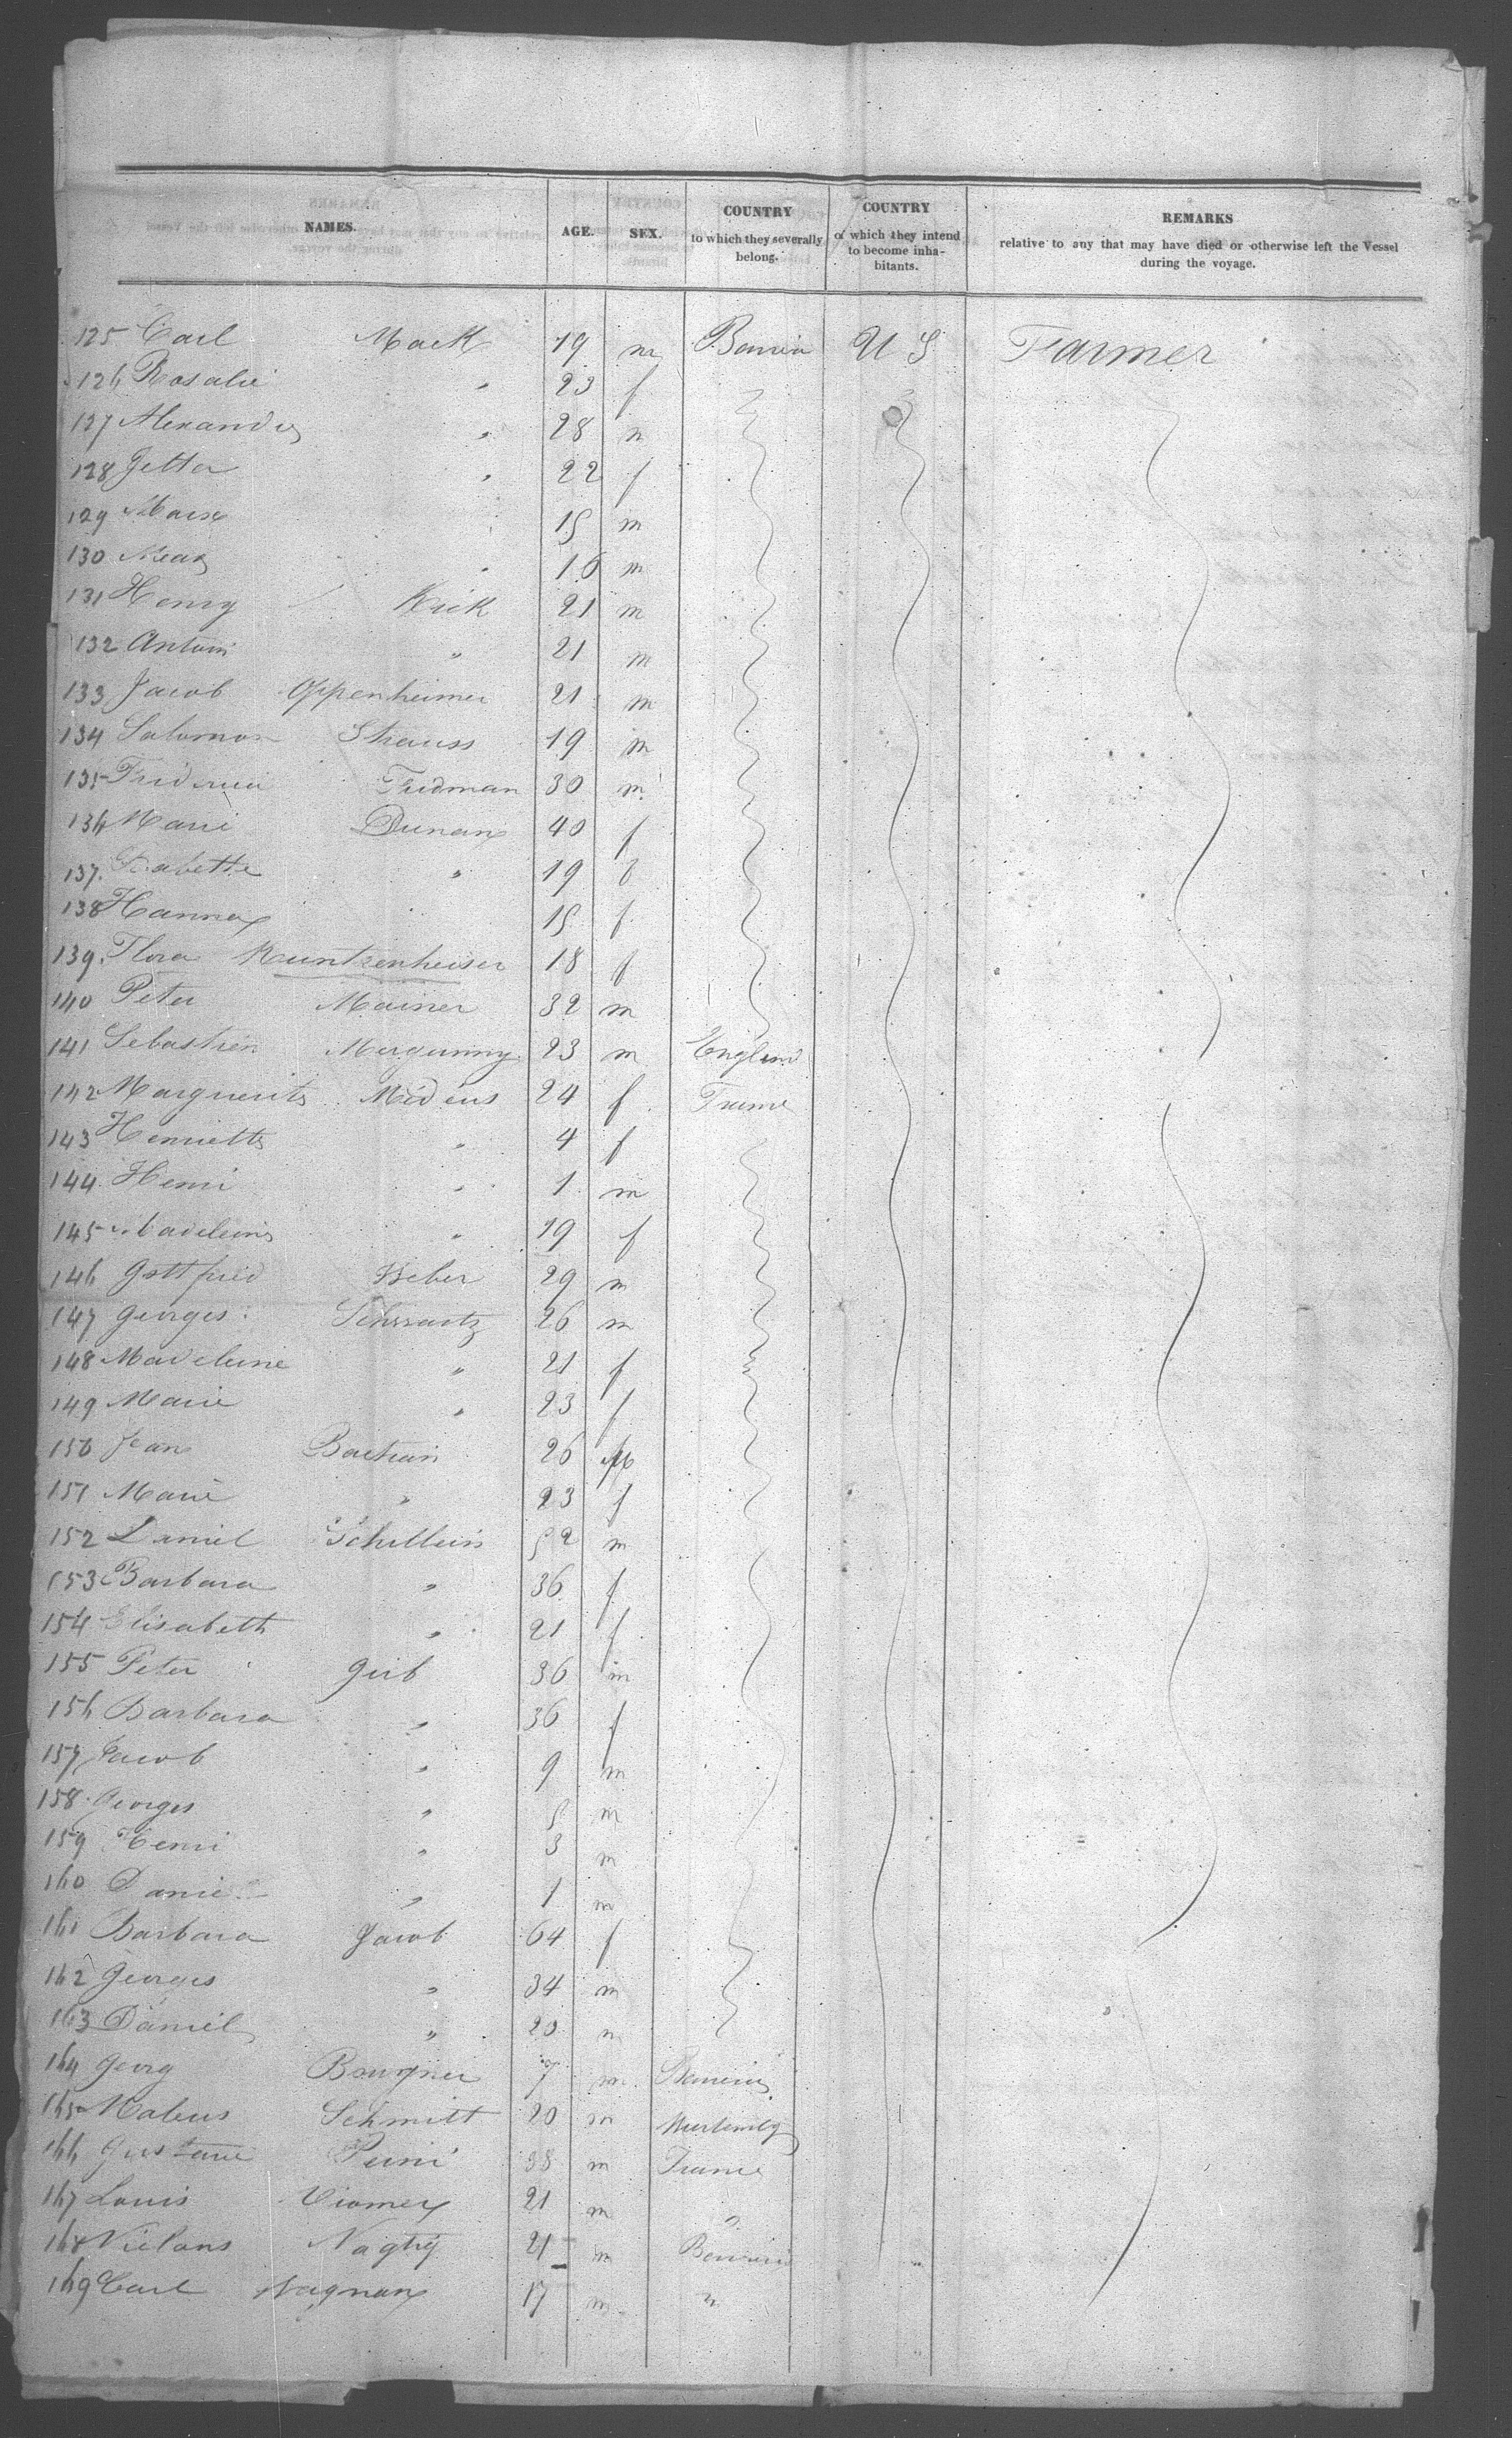 NAMES. AGE. SEX. COUNTRY to which they severally belong. COUNTRY of which they intend to become inhabitants. REMARKS relative to any that may have died or otherwise left the Vessel during the voyage.
125 Carl Mack 19 m Bavaria U S Farmer
126 Rosalie " 23 f
127 Alexander " 28 m
128 Jetta " 22 f
129 15 m
130 Max " 16 m
131 Henry Kick 21 m
132 Antoni " 21 m
133 Jacob Oppenheimer 21 m
134 Salomon Strauss 19 m
135 Fridman 30 m
136 Marie 40 f
137. Babette " 19 f
138 Hanna 15 f
139. Flora Kuntzenheiser 18 f
140 Peter Mainer 32 m
141 Sebastien 23 m England
142 Marguerite 24 f France
143 Henriette " 4 f
144 Henri " 1 m
145 Madeleine " 19 f
146 Gottfried Weber 29 m
147 Georges Schwartz 26 m
148 Madeleine " 21 f
149 Marie " 23 f
150 Jean 26 m
151 Marie " 23 f
152 Daniel 52 m
153 Barbara " 36 f
154 Elisabeth " 21 f
155 Peter Girb 36 m
156 Barbara " 36 f
157 Jacob " 9 m
158 Georges " 5 m
159 Henri " 3 m
160 Daniel " 1 m
161 Barbara Jacob 64 f
162 Georges " 34 m
163 Daniel " 20 m
164 Georg 7 m Bavaria
165 Schmitt 20 m
166 Gustave 38 m France
167 Louis 21 m "
168 21 m Bavaria
169 Carl 17 m "